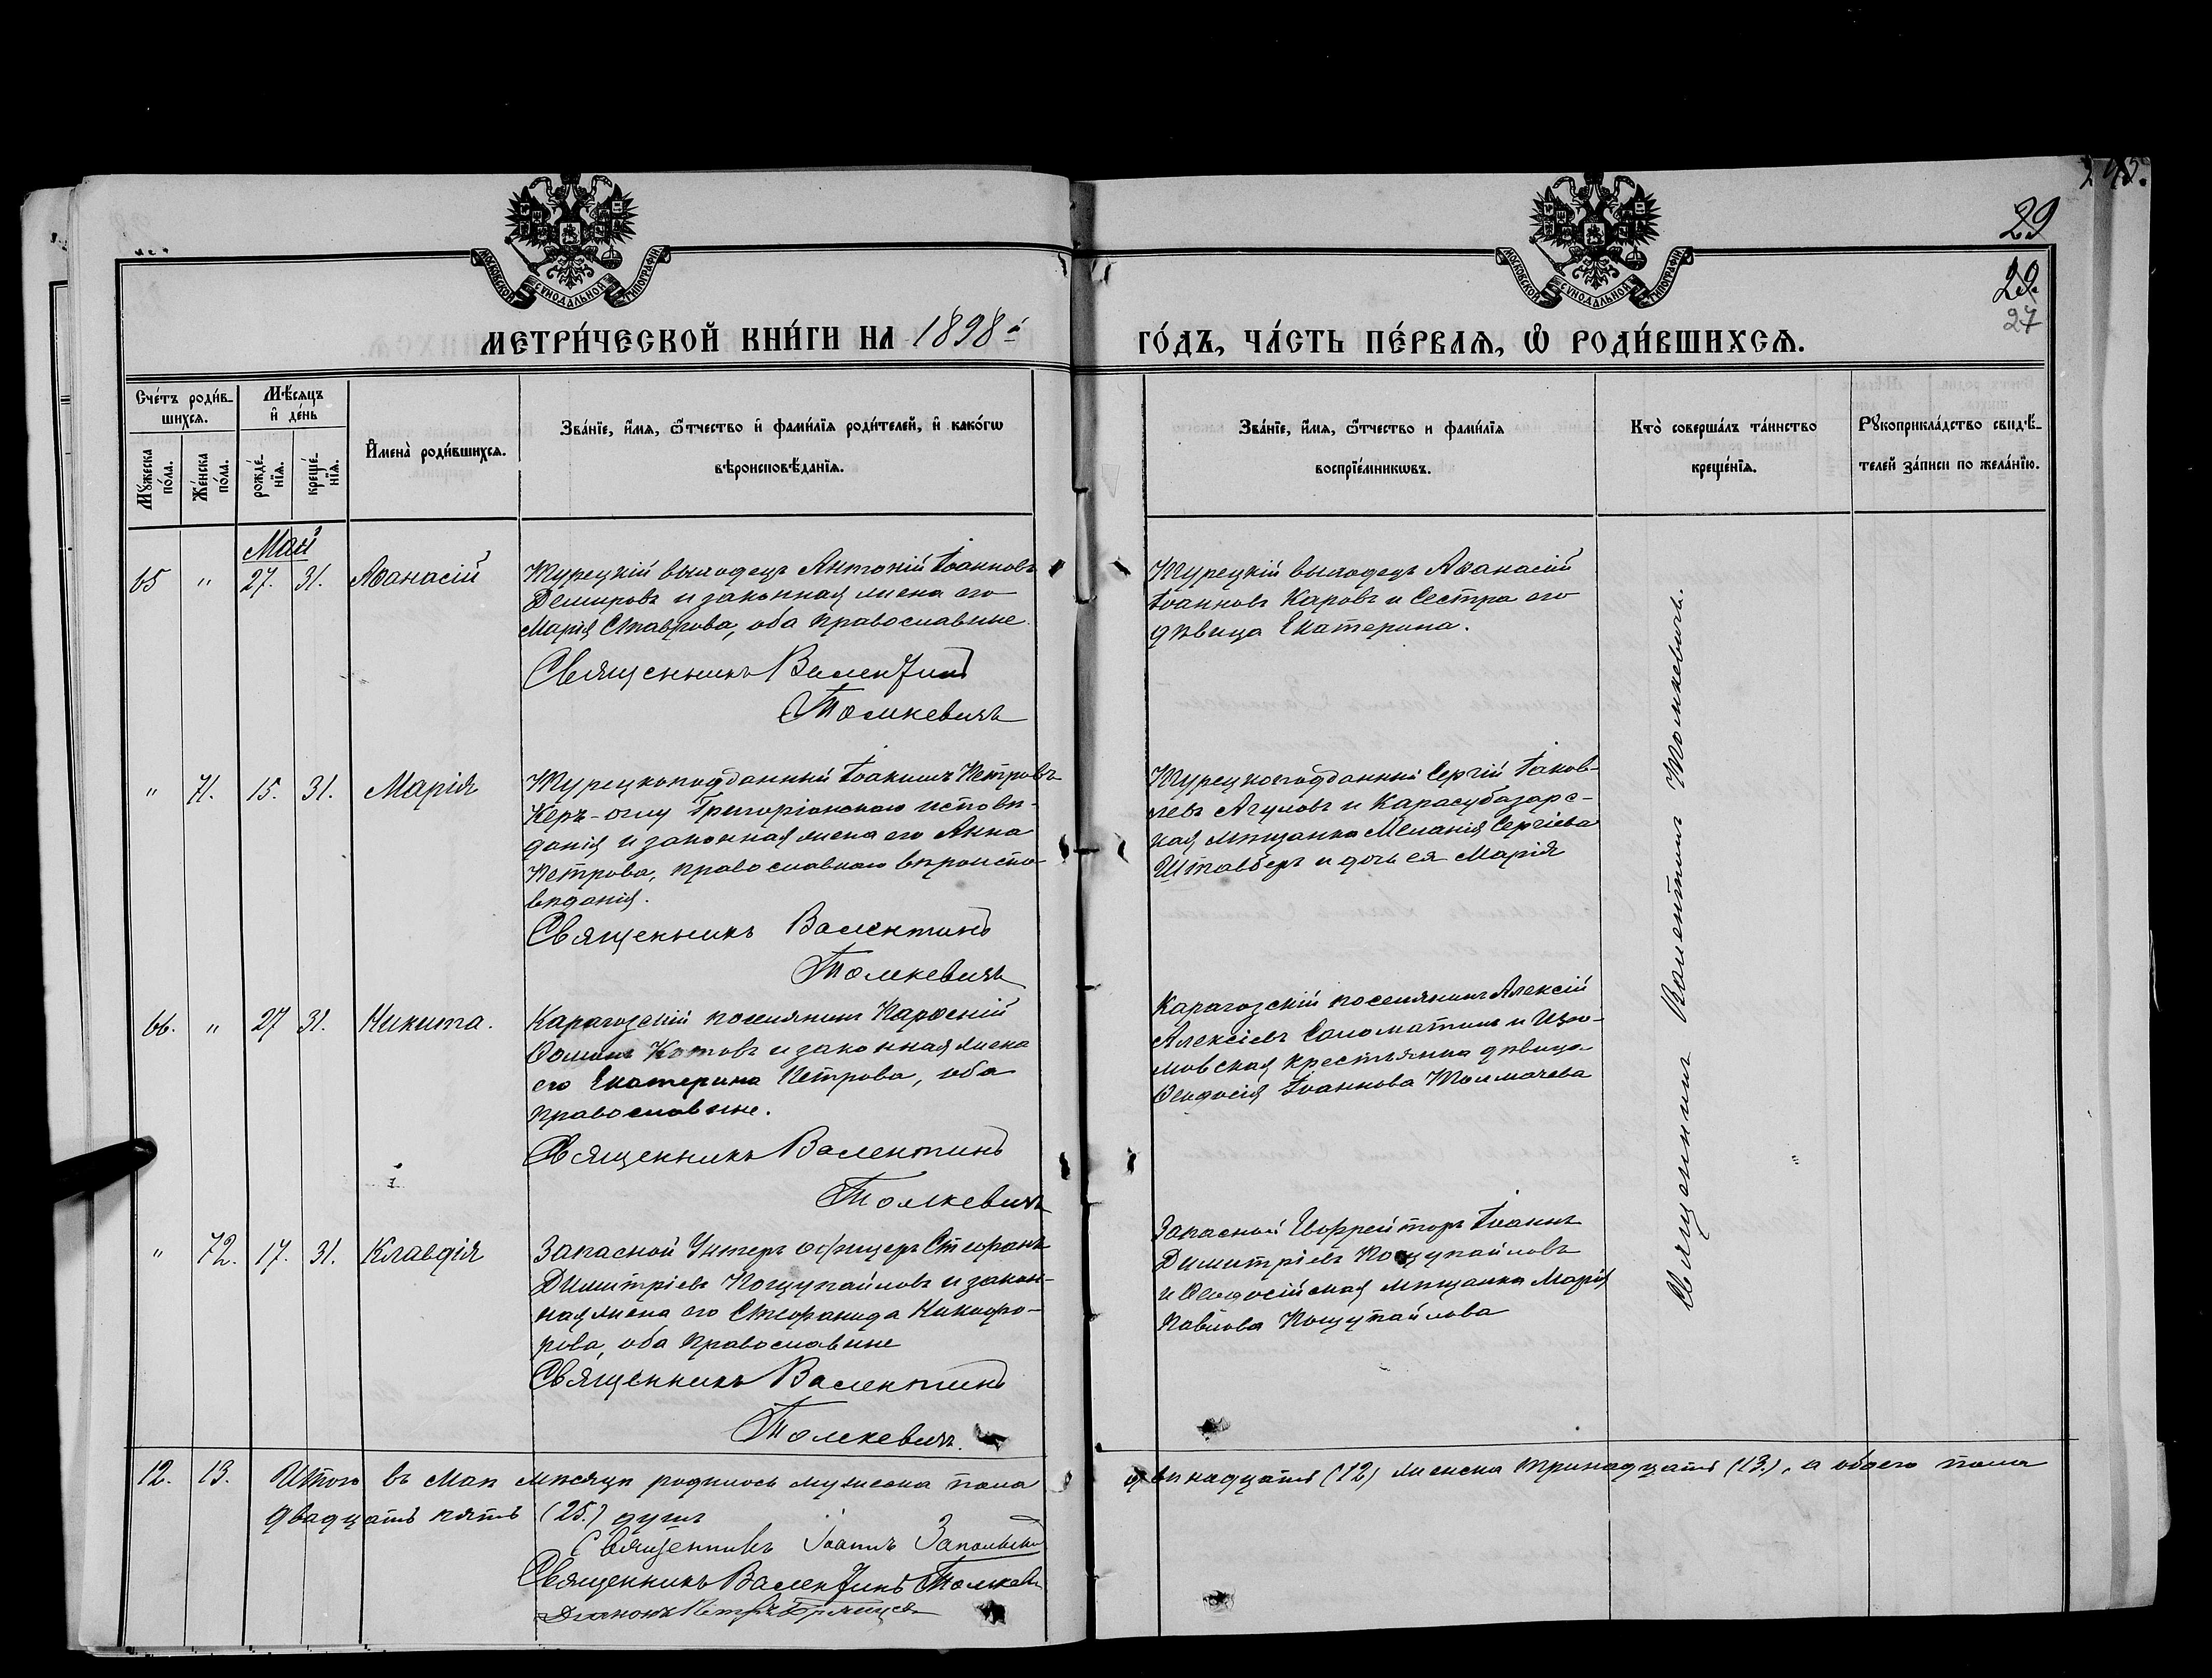 29
29.
27
МОСКОВСКОЙ СѴНОДАЛЬНОЙ ТИПОГРАФІИ
МОСКОВСКОЙ СѴНОДАЛЬНОЙ ТИПОГРАФІИ
МЕТРИ́ЧЕСКОЙ КНИ́ГИ НА 1898й ГО́ДЪ, ЧА́СТЬ ПЕ́РВАѦ, Ѽ РОДИ́ВШИХСѦ.
Сче́тъ роди́в-
шихсѧ.
Мѣ́сѧцъ
и҆ де́нь
Мꙋ́жеска по́ла.
Же́нска по́ла.
рожде́-нїѧ.
креще́-нїѧ.
И҆мена̀ роди́вшихсѧ.
Зва́нїе, и҆́мѧ, ѻ҆́тчество и҆ фами́лїѧ роди́телей, и҆ како́гѡ
вѣроисповѣ́данїѧ.
Зва́нїе, и҆́мѧ, ѻ҆́тчество и фами́лїѧ
воспрїе́мникѡвъ.
Кто̀ соверша́лъ та́инство
креще́нїѧ.
Рꙋкоприкла́дство свидѣ́-
телей за́писи по жела́нїю.
Май
65 " 27. 31. Аѳанасій
Турецкій выходецъ Антоній Іоанновъ
Демировъ и законная жена его
Марія Ставрова, оба православные.
Священникъ Валентинъ
Толкевичъ
Турецкій выходецъ Аѳанасій
Іоанновъ Каровъ и Сестра его
дѣвица Екатерина.
" 71. 15. 31. Марія
Турецкоподданный Іоакимъ Петровъ
Керъ-оглу Григоріанскаго исповѣ-
данія и законная жена его Анна
Петрова, православнаго вѣроиспо-
вѣданія.
Священникъ Валентинъ
Толкевичъ
Турецкоподданный Сергій Іаков-
левъ Агуловъ и Карасубазарс-
кая мѣщанка Меланія Сергіева
Штавберъ и дочь ея Марія
66. " 27 31. Никита.
Карагозскій поселянинъ Парѳеній
Ѳоминъ Котовъ и законная жена
его Екатерина Петрова, оба
православные.
Священникъ Валентинъ
Толкевичъ
Карагозскій поселянинъ Алексій
Алексіевъ Саломатинъ и Изю-
мовская крестьянка дѣвица
Ѳеодосія Іоаннова Толмачева
" 72. 17. 31. Клавдія
Запасной Унтеръ офицеръ Стефанъ
Димитріевъ Пощупайловъ и закон-
ная жена его Стефанида Никифо-
рова, оба православные
Священникъ Валентинъ
Толкевичъ.
Запасной Ефрейторъ Іоаннъ
Димитріевъ Пощупайловъ
и Ѳеодосійская мѣщанка Марія
Павлова Пощупайлова
Священникъ Валентинъ Толкевичъ.
12. 13. Итого въ Маѣ мѣсяцѣ родилось мужеска пола двѣнадцать (12) женска тринадцать (13.), а обоего пола
двадцать пять (25.) душъ
Священникъ Іоаннъ
Священникъ Валентинъ Толкеви
Діаконъ Петръ